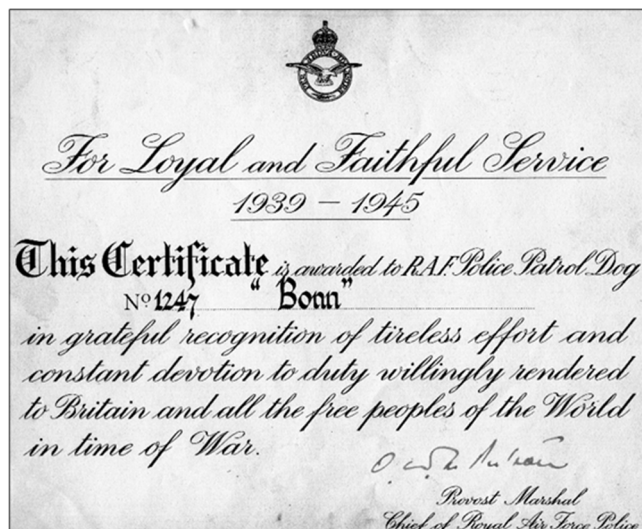 For Loyal and Faithful Service
1939 – 1945
This Certificate is awarded to R.A.F. Police Patrol Dog
No 1247 "Bonn"
in grateful recognition of tireless effort and
constant devotion to duty willingly rendered
to Britain and all the free peoples of the World
in time of War.
Provost Marshal
Chief of Royal Air Force Police